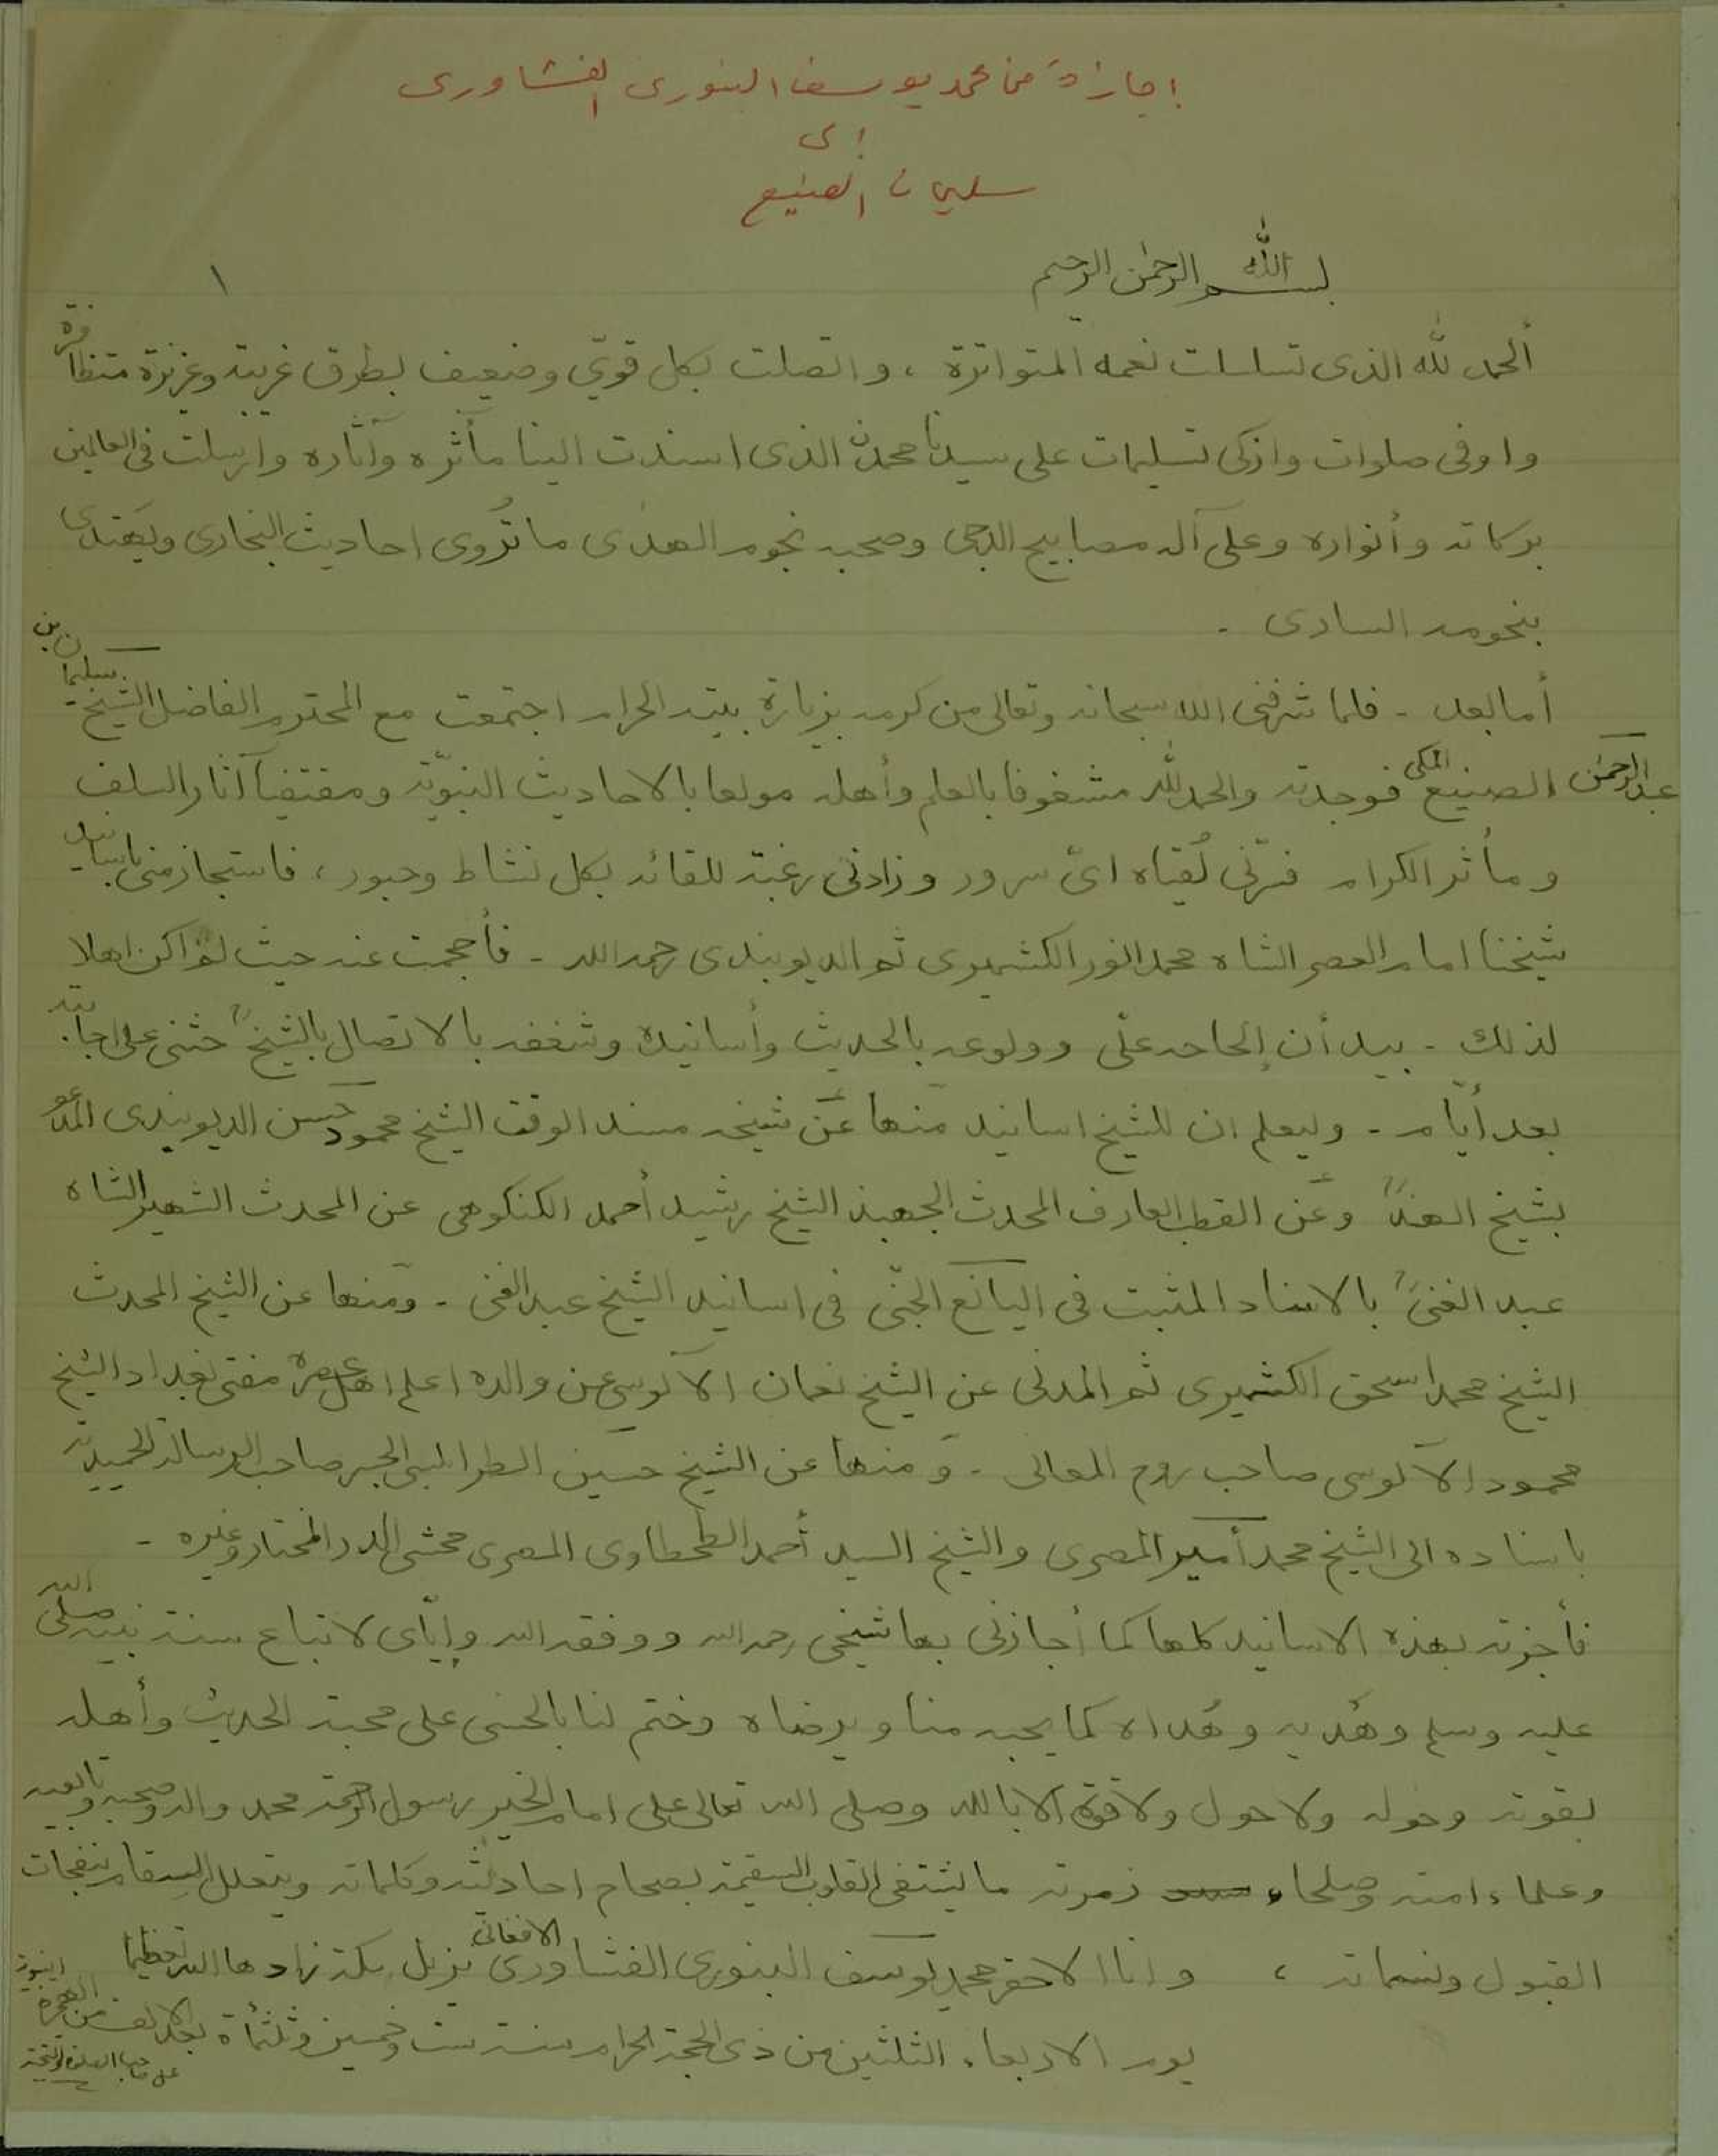 إجازة من محمد يوسف البنوري الفشاوري
إلى
سليمان الصنيع
بسم الله الرحمن الرحيم
١
ألحمد لله الذى تسلسلت نعمه المتواترة ، واتصلت بكل قويّ وضعيف بطرق غريبة وعزيزة متظافرة
واوفى صلوات وازكى تسليمات على سيدنا محمد الذى اسندت الينا مآثره وآثاره وارسلت فى العالمين
بركاته وأنواره وعلى آله مصابيح الدجى وصحبه نجوم الهدى ما تُروى احاديث البخارى ويهتدى
بنجومه السارى .
أما بعد - فلما شرفنى الله سبحانه وتعالى من كرمه بزيارة بيته الحرام اجتمعت مع المحترم الفاضل الشيخ سليمان بن
عبد الرحمن الصنيع المكى فوجدته والحمد لله مشغوفا بالعلم وأهله مولعا بالاحاديث النبويّة ومقتفيا آثار السلف
ومآثر الكرام فسرّنى لُقياه اىّ سرور وزادنى رغبة للقائه بكل نشاط وحبور ، فاستجاز منى باسانيد
شيخنا امام العصر الشاه محمد انور الكشميرى ثم الديوبندى رحمه الله - فأحجمت عنه حيث لم اكن اهلا
لذلك - بيد أن إلحاحه علىّ وولوعه بالحديث وأسانيده وشغفه بالاتصال بالشيخ حثنى على اجابته
بعد أيّام - وليعلم ان للشيخ اسانيد منها عن شيخه مسند الوقت الشيخ محمود حسن الديوبندى المدعو
بشيخ الهند وعن القطب العارف المحدث الجهبذ الشيخ رشيد أحمد الكنكوهى عن المحدث الشهير الشاه
عبد الغنى بالاسناد المثبت فى اليانع الجنّى فى اسانيد الشيخ عبد الغنى - ومنها عن الشيخ المحدث
الشيخ محمد اسحق الكشميرى ثم المدنى عن الشيخ نعمان الآلوسى عن والده اعلم اهل عصره مفتى بغداد الشيخ
محمود الآلوسى صاحب روح المعانى - ومنها عن الشيخ حسين الطرابلسى الجسر صاحب الرسالة الحميدية
باسناده الى الشيخ محمد أمير المصرى والشيخ السيد أحمد الطحطاوى المصرى محشى الدر المختار وغيره -
فأجزته بهذه الاسانيد كلها كما أجازنى بها شيخى رحمه الله ووفقه الله وإيّاى لاتباع سنة نبيه صلى الله
عليه وسلم وهَديه وهُداه كما يحبه منا ويرضاه وختم لنا بالحسنى على محبة الحديث وأهله
بقوته وحوله ولا حول ولا قوة الا بالله وصلى الله تعالى على امام الخير رسول الرحمة محمد واله وصحبه وتابعيه
وعلماء امته وصلحاء زمرته ما يشتفى القلوب السقيمة بصحاح احاديثه وكلماته ويتعلل السقام بنفحات
القبول ونسماته ، وانا الاحقر محمد يوسف البنورى الفشاورى الافغانى نزيل مكة زادها الله تعظيما
يوم الاربعاء الثلثين من ذى الحجة الحرام سنة ست وخمسين وثلثمأة بعد الالف من الهجرة النبوية
على صاحبها الصلوة والتحية